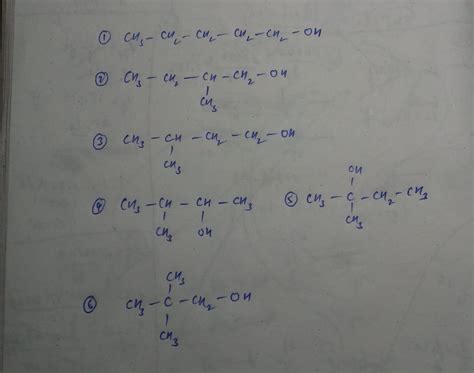 ① CH₃ – CH₂ – CH₂ – CH₂ – CH₂ – OH
② CH₃ – CH₂ – CH – CH₂ – OH
CH₃
③ CH₃ – CH – CH₂ – CH₂ – OH
CH₃
④ CH₃ – CH – CH – CH₃
CH₃ OH
OH
⑤ CH₃ – C – CH₂ – CH₃
CH₃
CH₃
⑥ CH₃ – C – CH₂ – OH
CH₃